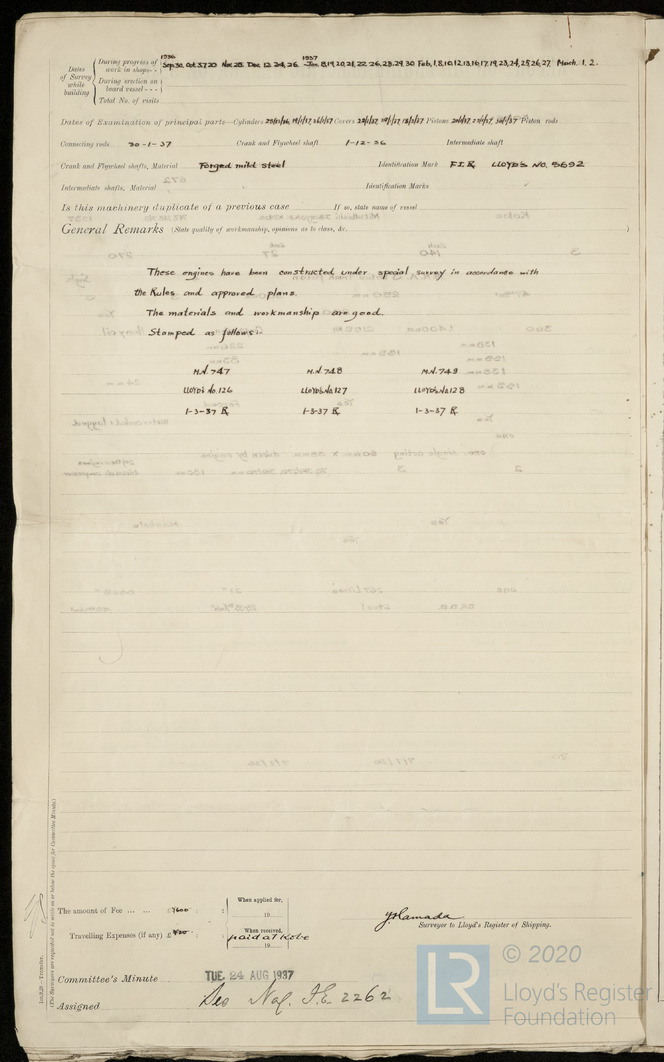 Dates of Survey while building
During progress of work in shops - -
1936 Sep. 30. Oct. 3.7.20 Nov. 28. Dec. 12. 24. 26. 1937 Jan. 8,19,20,21,22.26.28.29.30 Feb, 1,8,10,12,13,16,17,19,23,24,25,26,27 March. 1. 2.
During erection on board vessel - - -
Total No. of visits
Dates of Examination of principal parts—Cylinders Covers Pistons Piston rods
Connecting rods 30-1-37 Crank and Flywheel shaft 1-12-36 Intermediate shaft
Crank and Flywheel shafts, Material Forged mild steel Identification Mark LLOYD'S NO. 5692
Intermediate shafts, Material Identification Marks
Is this machinery duplicate of a previous case If so, state name of vessel
General Remarks (State quality of workmanship, opinions as to class, &c. )
These engines have been constructed under special survey in accordance with
the Rules and approved plans.
The materials and workmanship are good.
Stamped as follows:-
M.N. 747 M.N. 748 M.N. 749
LLOYD'S No. 126 LLOYD'S No 127 LLOYD'S No 128
1-3-37 1-3-37 1-3-37
The amount of Fee ... ... £
When applied for,
19
Travelling Expenses (if any) £
When received,
paid at Kobe
19
Surveyor to Lloyd's Register of Shipping.
Committee's Minute TUE. 24 AUG 1937
Assigned See Nag. J.E. 2262
(The Surveyors are requested not to write on or below the space for Committee Minute.)
LR
© 2020
Lloyd's Register
Foundation